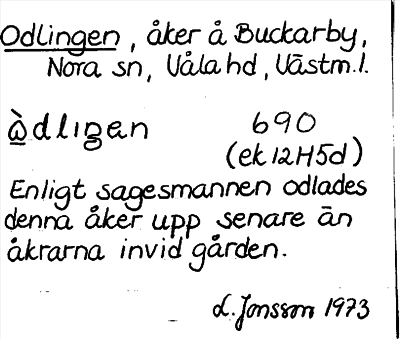 Odlingen, åker å Buckarby,
Nora sn, Våla hd, Västm.l.
àdlıgen 690
(ek 12H5d)
Enligt sagesmannen odlades
denna åker upp senare än
åkrarna invid gården.
L. Jonsson 1973